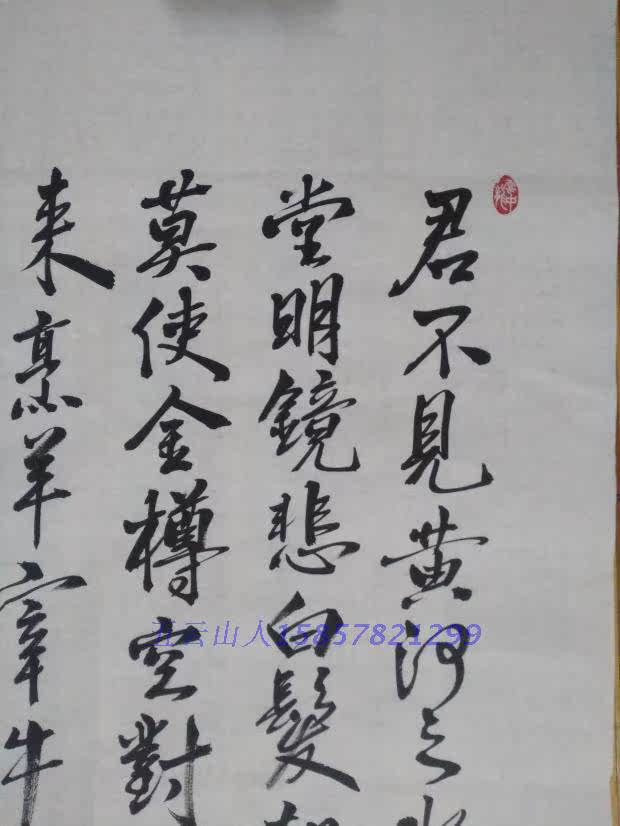 君不見黄河之水
堂明鏡悲白髮朝
莫使金樽空對
来烹羊宰牛
云山人15857821299